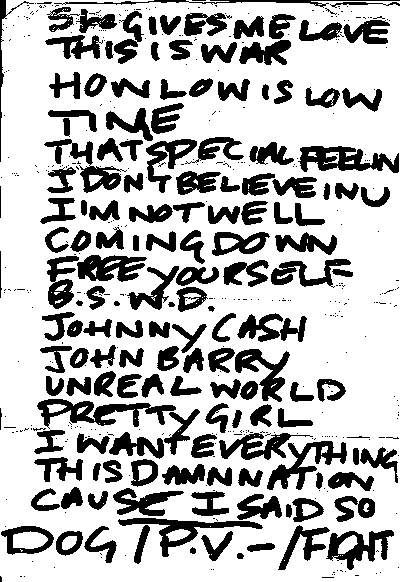 She GIVES ME LOVE
THIS IS WAR
HOW LOW IS LOW
TIME
THAT SPECIAL FEELIN
I DON'T BELIEVE IN U
I'M NOT WELL
COMING DOWN
FREE YOURSELF
B.S.W.D.
JOHNNY CASH
JOHN BARRY
UNREAL WORLD
PRETTY GIRL
I WANT EVERYTHING
THIS DAMN NATION
CAUSE I SAID SO
DOG / P.V. - / FIGHT